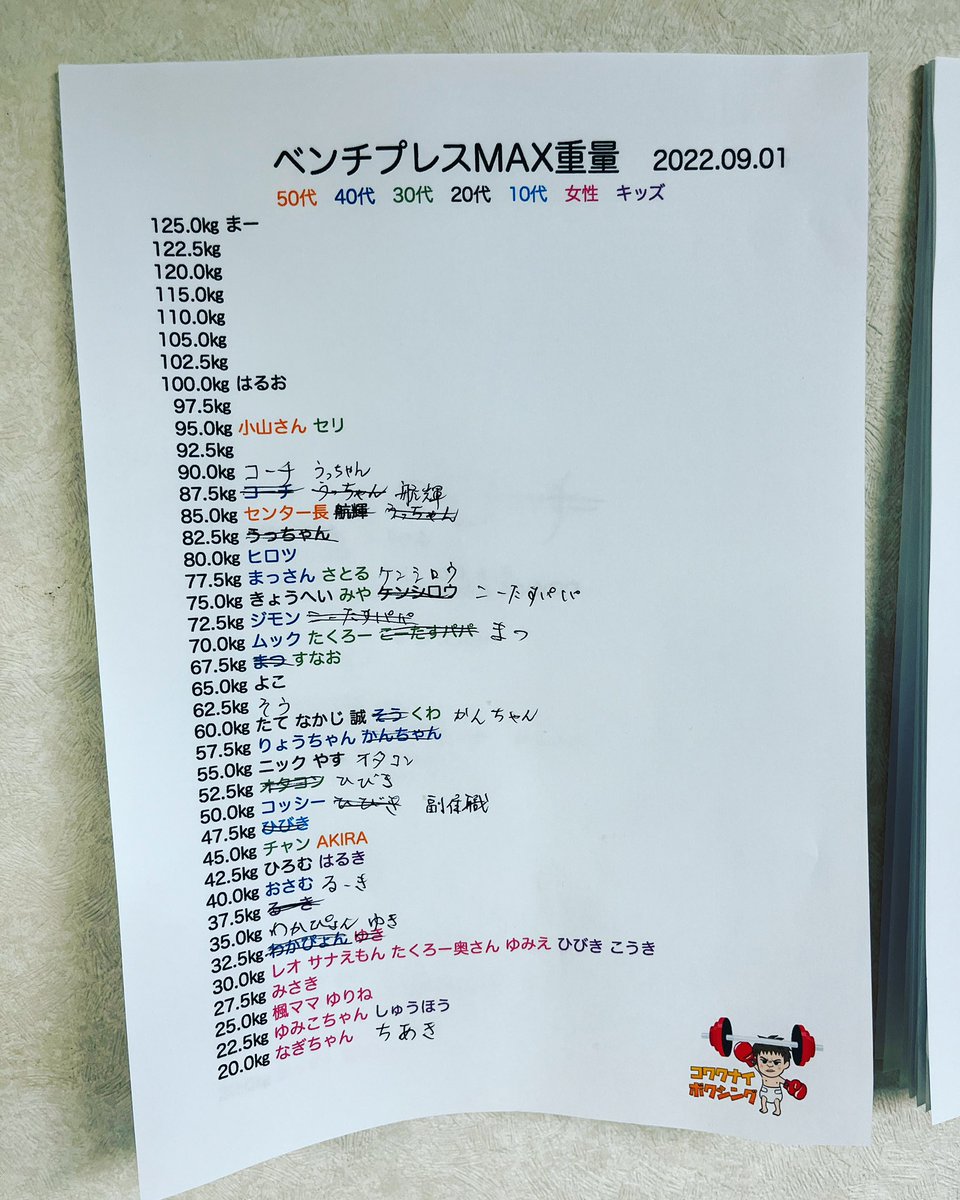 ベンチプレスMAX重量 2022.09.01
50代 40代 30代 20代 10代 女性 キッズ
125.0kg まー
122.5kg
120.0kg
115.0kg
110.0kg
105.0kg
102.5kg
100.0kg はるお
97.5kg
95.0kg 小山さん セリ
92.5kg
90.0kg コーチ うっちゃん
87.5kg コーチ うっちゃん 航輝
85.0kg センター長 航輝 うっちゃん
82.5kg うっちゃん
80.0kg ヒロツ
77.5kg まっさん さとる ケンシロウ
75.0kg きょうへい みや ケンシロウ こーたすパパ
72.5kg ジモン こーたすパパ
70.0kg ムック たくろー こーたすパパ まつ
67.5kg まつ すなお
65.0kg よこ
62.5kg そう
60.0kg たて なかじ 誠 そう くわ かんちゃん
57.5kg りょうちゃん かんちゃん
55.0kg ニック やす オタコン
52.5kg オタコン ひびき
50.0kg コッシー ひびき 副住職
47.5kg ひびき
45.0kg チャン AKIRA
42.5kg ひろむ はるき
40.0kg おさむ るーき
37.5kg るーき
35.0kg わかぴょん ゆき
32.5kg わかぴょん ゆき
30.0kg レオ サナえもん たくろー奥さん ゆみえ ひびき こうき
27.5kg みさき
25.0kg 楓ママ ゆりね
22.5kg ゆみこちゃん しゅうほう
20.0kg なぎちゃん ちあき
コワクナイ
ボクシング